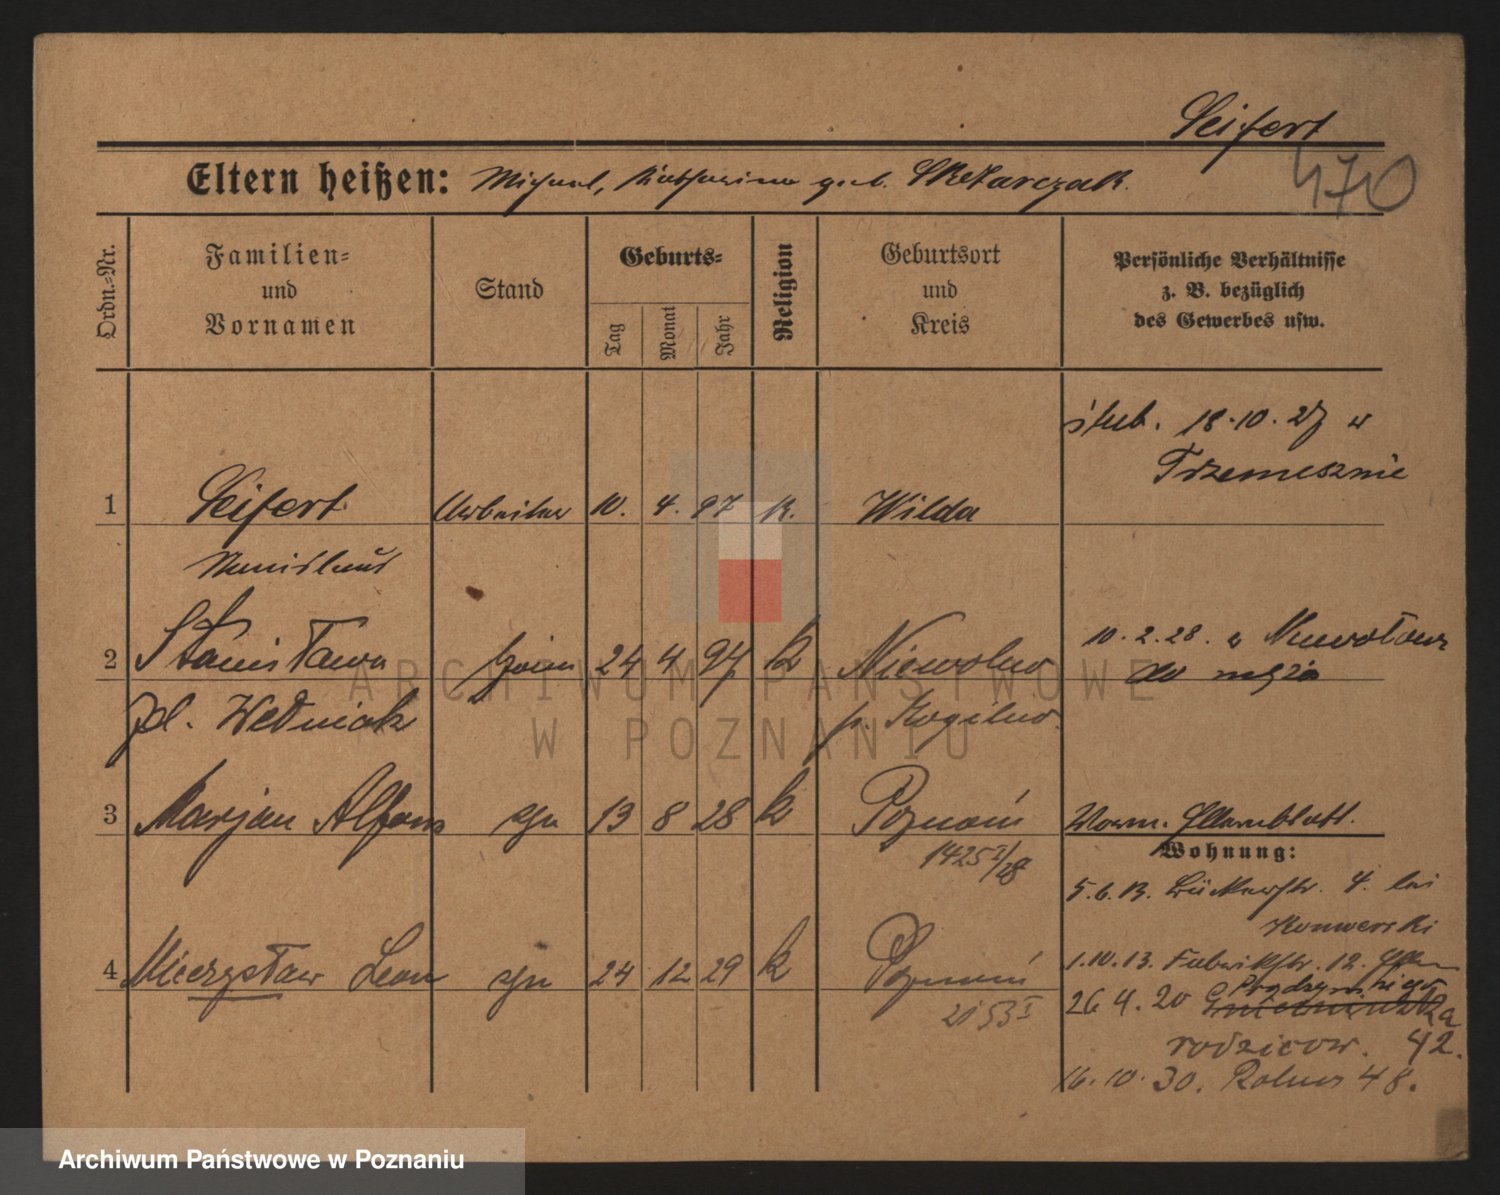 Seifert
470
Eltern heißen: Michael, Katharina geb. Skotarczak.
Ordn.=Nr.
Familien=
und
Vornamen
Stand
Geburts=
Tag
Monat
Jahr
Religion
Geburtsort
und
Kreis
Persönliche Verhältnisse
z. B. bezüglich
des Gewerbes usw.
ślub. 18.10.27 w
Trzemesznie
1 Seifert Arbeiter 10. 4. 97 k. Wilda
Stanislaus
2 Stanisława żona 24 4 94 k Niewolno
10.2.28. z
do męża
zd. Wedniak p. Mogilno.
3 Marjan Alfons syn 13 8 28 k Poznań
1425 I/28
Vorm. Elternblatt.
Wohnung:
5.6.13. 4. bei
Konwerski
4 Mieczysław Leon syn 24 12 29 k Poznań
2153 I
1.10.13. Fabrikstr. 12. Eltern
26 4. 20 Prądzyńskiego
za
rodzicow. 42.
16.10.30. Rolna 48.
ARCHIWUM PAŃSTWOWE
W POZNANIU
Archiwum Państwowe w Poznaniu